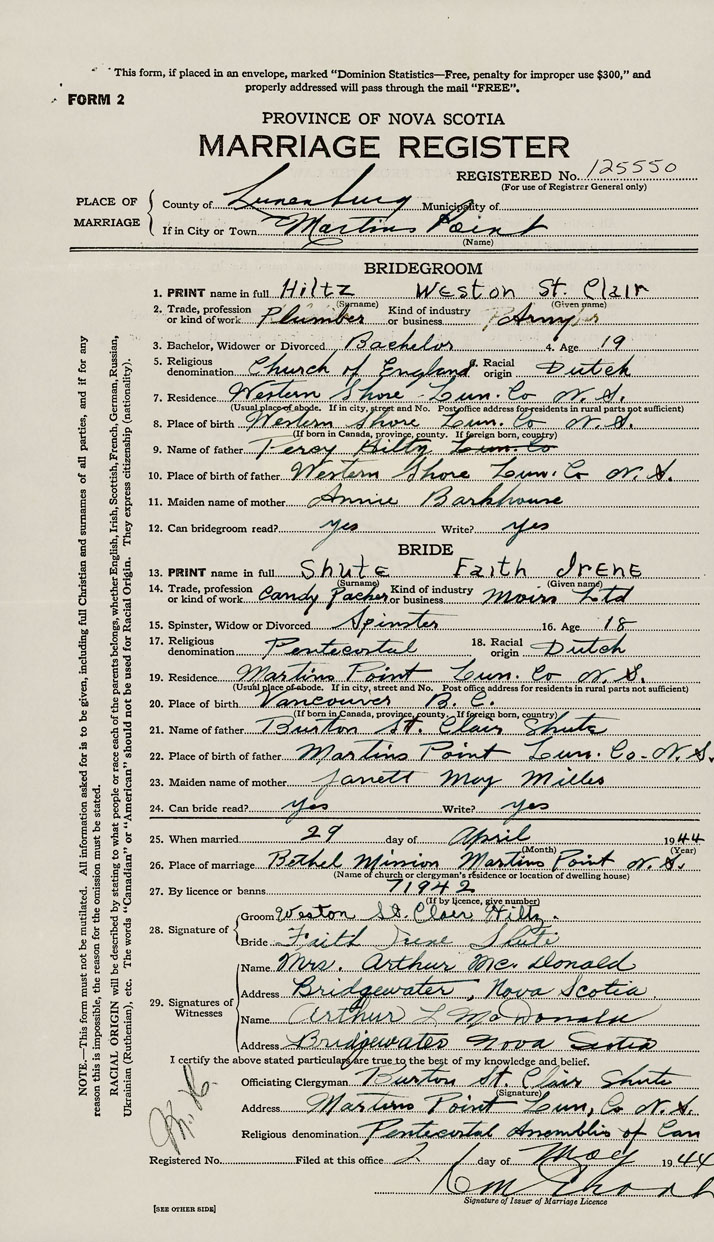 This form, if placed in an envelope, marked "Dominion Statistics—Free, penalty for improper use $300," and
properly addressed will pass through the mail "FREE".
FORM 2
PROVINCE OF NOVA SCOTIA
MARRIAGE REGISTER
REGISTERED No. 125550
(For use of Registrar General only)
PLACE OF MARRIAGE
County of Lunenburg Municipality of
If in City or Town Martins Point
(Name)
BRIDEGROOM
1. PRINT name in full Hiltz Weston St. Clair
(Surname) (Given name)
2. Trade, profession or kind of work Plumber Kind of industry or business Army
3. Bachelor, Widower or Divorced Bachelor 4. Age 19
5. Religious denomination Church of England 6. Racial origin Dutch
7. Residence Western Shore Lun. Co N. S.
(Usual place of abode. If in city, street and No. Post office address for residents in rural parts not sufficient)
8. Place of birth Western Shore Lun. Co N. S.
(If born in Canada, province, county. If foreign born, country)
9. Name of father Percy Hiltz Lun. Co
10. Place of birth of father Western Shore Lun. Co N. S.
11. Maiden name of mother Annie Barkhouse
12. Can bridegroom read? yes Write? yes
BRIDE
13. PRINT name in full Shute Faith Irene
(Surname) (Given name)
14. Trade, profession or kind of work Candy Packer Kind of industry or business Moirs Ltd
15. Spinster, Widow or Divorced Spinster 16. Age 18
17. Religious denomination Pentecostal 18. Racial origin Dutch
19. Residence Martins Point Lun. Co N. S.
(Usual place of abode. If in city, street and No. Post office address for residents in rural parts not sufficient)
20. Place of birth Vancouver B. C.
(If born in Canada, province, county. If foreign born, country)
21. Name of father Burton St. Clair Shute
22. Place of birth of father Martins Point Lun. Co. N. S.
23. Maiden name of mother Janett May Milles
24. Can bride read? yes Write? yes
25. When married 29 day of April 1944
(Month) (Year)
26. Place of marriage Bethel Mission Martins Point N. S.
(Name of church or clergyman's residence or location of dwelling house)
27. By licence or banns 71942
(If by licence, give number)
28. Signature of
Groom Weston St. Clair Hiltz.
Bride Faith Irene Shute
29. Signatures of Witnesses
Name Mrs. Arthur McDonald
Address Bridgewater, Nova Scotia
Name Arthur L McDonald
Address Bridgewater Nova Scotia
I certify the above stated particulars are true to the best of my knowledge and belief.
Officiating Clergyman Burton St. Clair Shute
(Signature)
Address Martins Point Lun, Co N. S.
Religious denomination Pentecostal Assemblis of Can
Registered No. Filed at this office 2 day of May 1944
Signature of Issuer of Marriage Licence
[SEE OTHER SIDE]
NOTE.—This form must not be mutilated. All information asked for is to be given, including full Christian and surnames of all parties, and if for any
reason this is impossible, the reason for the omission must be stated.
RACIAL ORIGIN will be described by stating to what people or race each of the parents belongs, whether English, Irish, Scottish, French, German, Russian,
Ukrainian (Ruthenian), etc. The words "Canadian" or "American" should not be used for Racial Origin. They express citizenship (nationality).